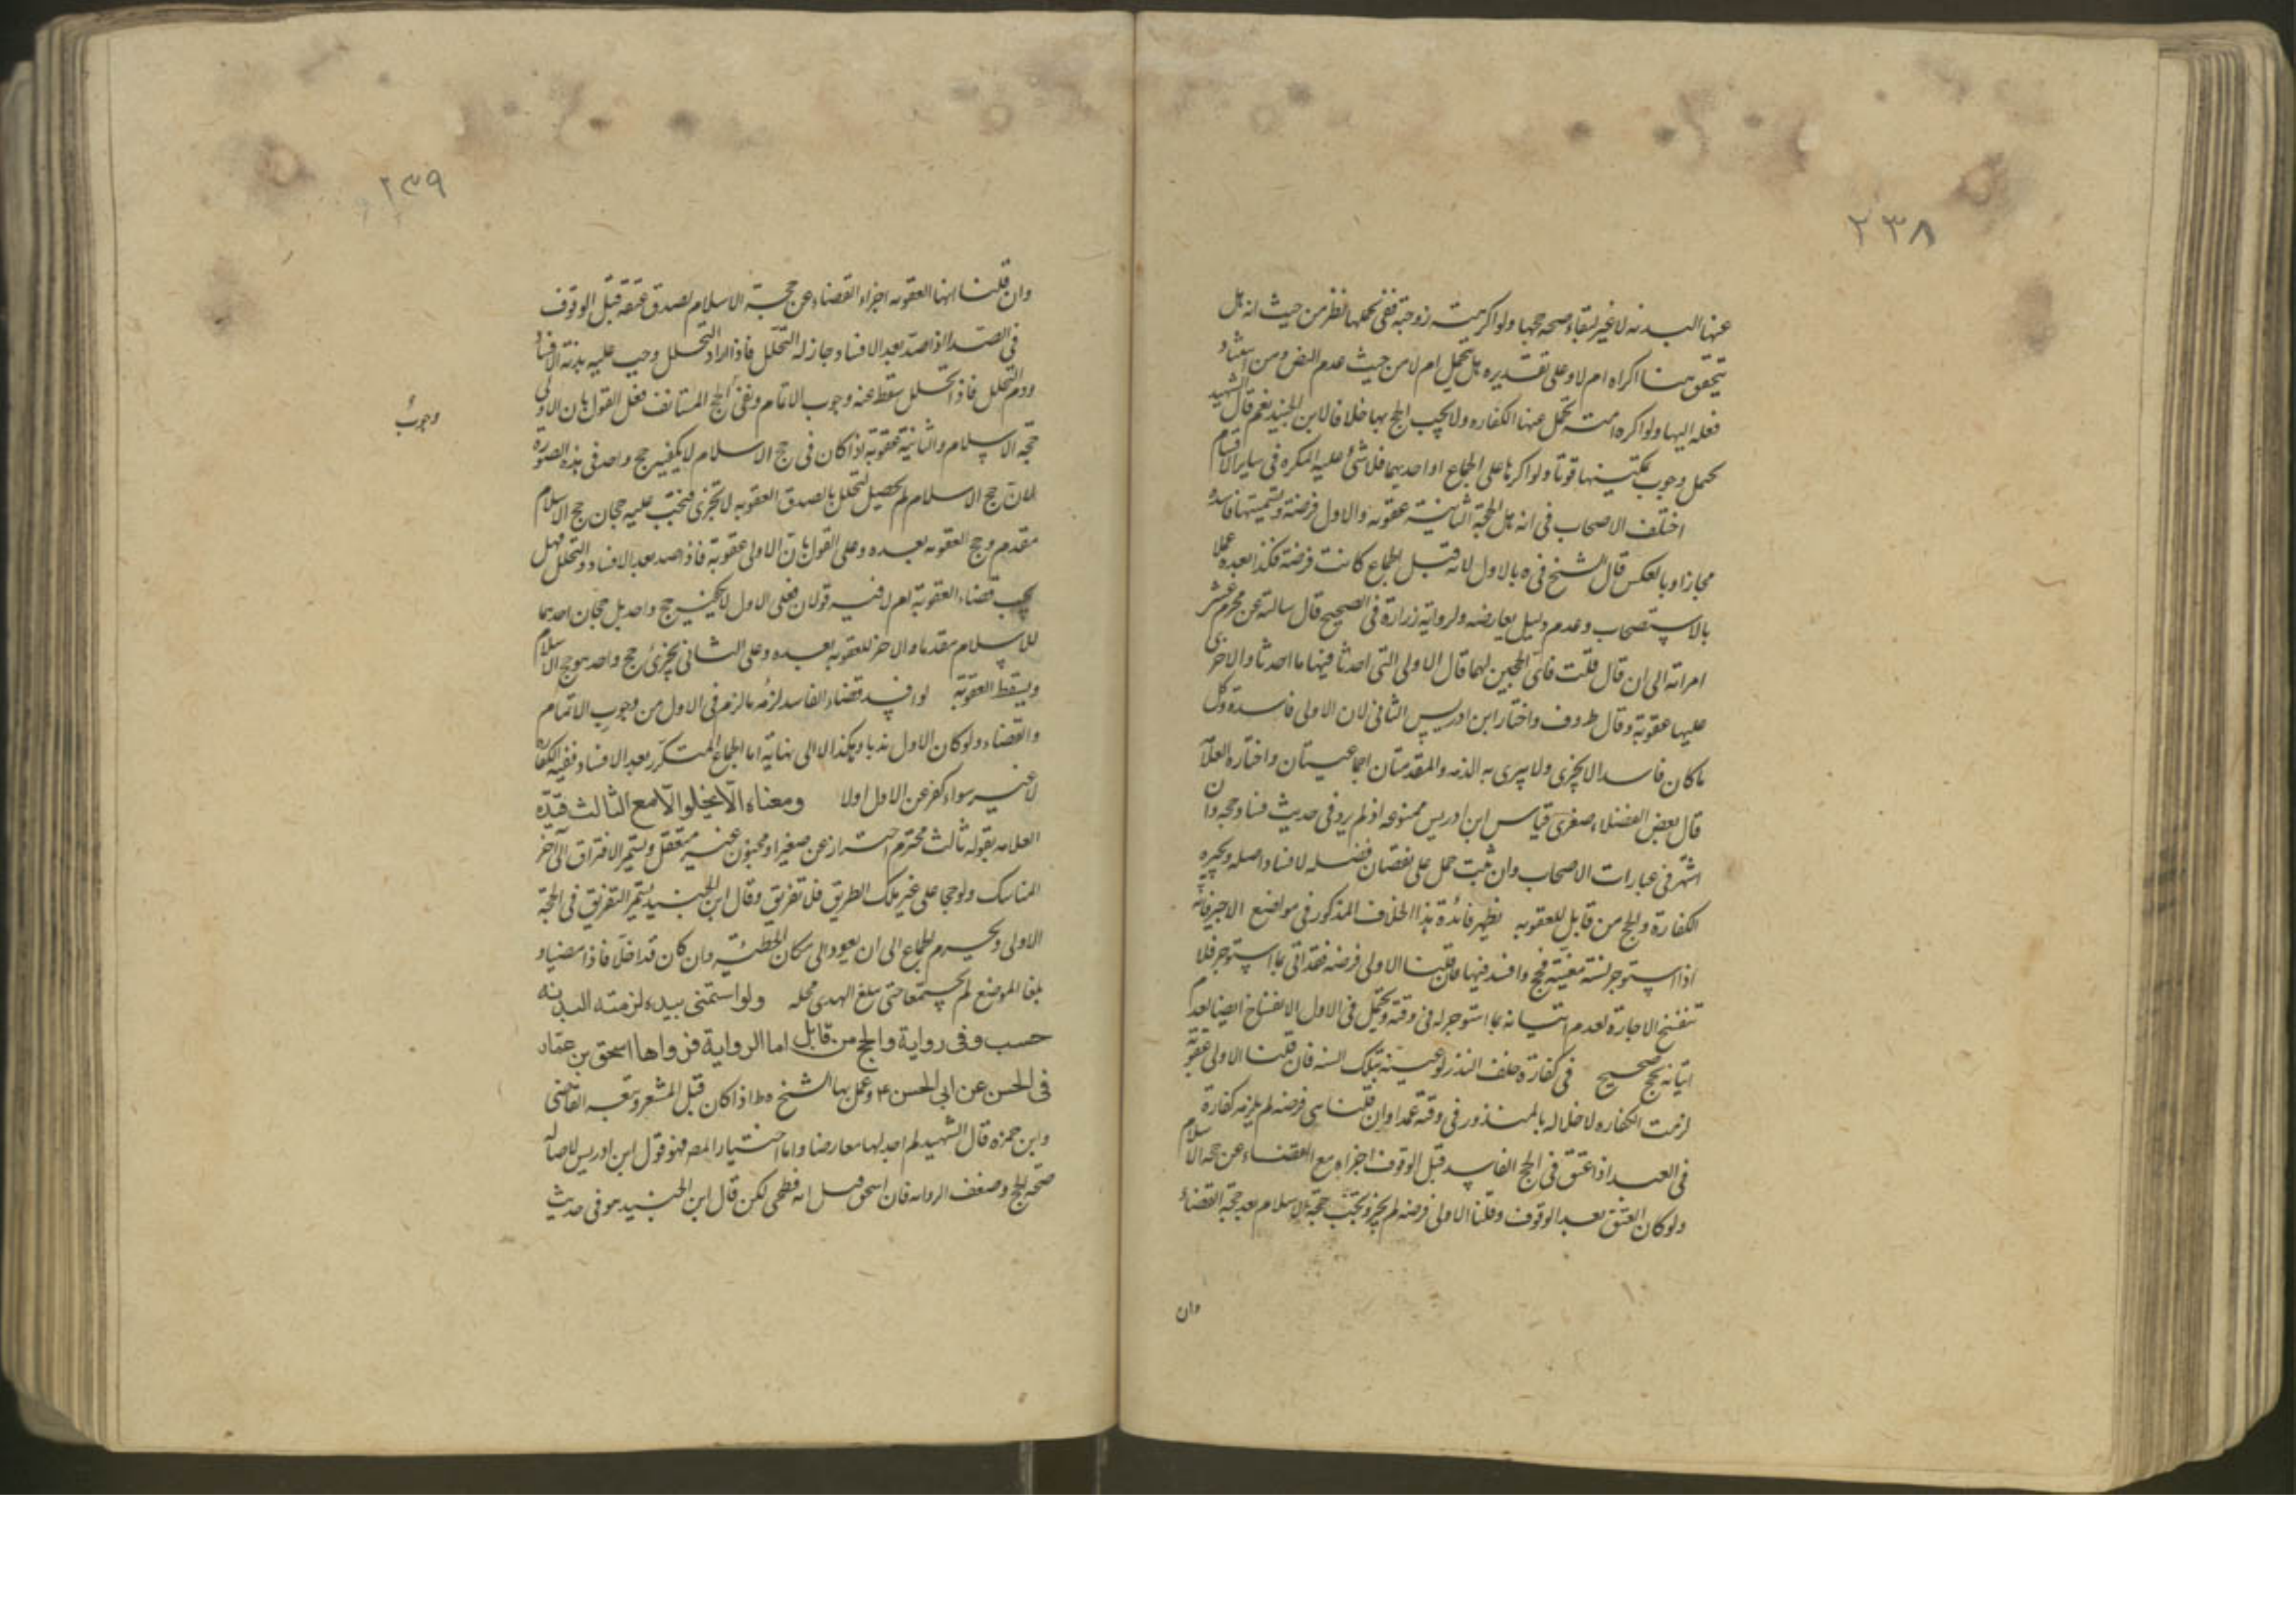 ٢٣٨
عنها البدنه لا غير لبقاء صحه حجها ولو اكرهته زوجته ففى تحملها نظر من حيث انه هل
يتحقق هنا اكراه ام لا وعلى تقديره هل يتحمل ام لا من حيث عدم النص ومن استناد
فعله اليها ولو اكره امته تحمل عنها الكفاره ولا يجب الحج بها خلافا لابن الجنيد نعم قال الشهيد
يحتمل وجوب تمكينها قوتا ولو اكرها على الجماع او احديهما فلا شئ عليه المكره فى ساير الاقسام
اختلف الاصحاب فى انه هل الحجة الثانية عقوبه والاول فرضه وتسميتها فاسده
مجازا وبالعكس قال الشيخ فى ه بالاول لانه قبل الجماع كانت فرضه فكذا بعده عملا
بالاستصحاب وعدم دليل يعارضه ولرواية زرارة فى الصحيح قال سالته عن محرم غشى
امراته الى ان قال قلت فاى الحجين لهما قال الاولى التى احدثا فيها ما احدثا والاخرى
عليها عقوبة وقال ط وف واختار ابن ادريس الثانى لان الاولى فاسدة وكل
ما كان فاسدا لا يجزى ولا يبرى به الذمه والمقدمتان اجماعيتان واختاره العلامة
قال بعض الفضلاء صغرى قياس ابن ادريس ممنوعه اذ لم يرو فى حديث فساد حجه وان
اشتهر فى عبارات الاصحاب وان ثبت حمل على نقصان فضله لا فساد اصله ويجبره
الكفارة والحج من قابل للعقوبه يظهر فائدة هذا الخلاف المذكور فى مواضع الاجير فانه
اذا استوجر لسنة معينة فحج وافسد فيها فان قلنا الاولى فرضه فقد اتى بما استوجر فلا
تنفسخ الاجارة لعدم اتيانه بما استوجر له فى وقته ويحتمل فى الاول الانفساخ ايضا لعدم
اتيانه بحج صحيح فى كفارة خلف النذر لو عينه بتلك السنه فان قلنا الاولى عقوبة
لزمت الكفاره لاخلاله بالمنذور فى وقته عمدا وان قلنا هى فرضه لم يلزمه كفارة
فى العبد اذا عتق فى الحج الفاسد قبل الوقوف اجزاه مع القضاء عن حجه الاسلام
ولو كان العتق بعد الوقوف وقلنا الاولى فرضه لم يجز ويجب حجة الاسلام بعد حجة القضاء
وان
٢٣٩
وان قلنا انها العقوبه اجزاء القضاء عن حجة الاسلام لصدق عتقه قبل الوقوف
فى الصد اذا صد بعد الافساد جاز له التحلل فاذا اراد التحلل وجب عليه بدنة الافساد
ودم التحلل فاذا تحلل سقط عنه وجوب الاتمام وبقى الحج المستانف فعلى القول بان الاولى
وجوب
حجه الاسلام والثانية عقوبة اذا كان فى حج الاسلام لا يكفيه حج واحد فى هذه الصورة
لان حج الاسلام لم يحصل لتحلل بالصد والعقوبه لا تجزى فيجب عليه حجان حج الاسلام
مقدم وحج العقوبه بعده وعلى القول بان الاولى عقوبة فاذا صد بعد الافساد والتحلل فهل
يجب قضاء العقوبة نعم لا فيه قولان فعلى الاول لا يكفيه حج واحد بل حجان احديهما
للاسلام مقدما والاخر للعقوبه بعده وعلى الثانى يجزئ حج واحد هو حج الاسلام
ويسقط العقوبة لو افسد قضاء الفاسد لزمه ما لزم فى الاول من وجوب الاتمام
والقضاء ولو كان الاول ندبا وهكذا لا الى نهاية اما الجماع المتكرر بعد الافساد ففيه الكفارة
لا غير سواء كفر عن الاول اولا ومعناه الا يخلوا الا مع الثالث قيده
العلامه بقوله ثالث محترم احترازا عن صغير او مجنون غير متعقل ويستمر الافتراق الى آخر
المناسك ولو حجا على غير تلك الطريق فلا تفريق وقال ابن الجنيد يستمر التفريق فى الحجة
الاولى ويحرم الجماع الى ان يعود الى مكان الخطيئه وان كان قد احلا فاذا مضيا و
بلغا الموضع لم يجتمعا حتى يبلغ الهدى محله ولو استمنى بيده لزمته البدنه
حسب وفى رواية والحج من قابل اما الرواية فرواها اسحق بن عمار
فى الحسن عن ابى الحسن ع وعمل بها الشيخ ه ط اذا كان قبل المشعر وتبعه القاضى
وابن حمزه قال الشهيد لم اجد لها معارضا واما اختيار المصه فهو قول ابن ادريس لاصاله
صحة الحج وضعف الروايه فان اسحق قيل انه فطحى لكن قال ابن الجنيد هو فى حديث